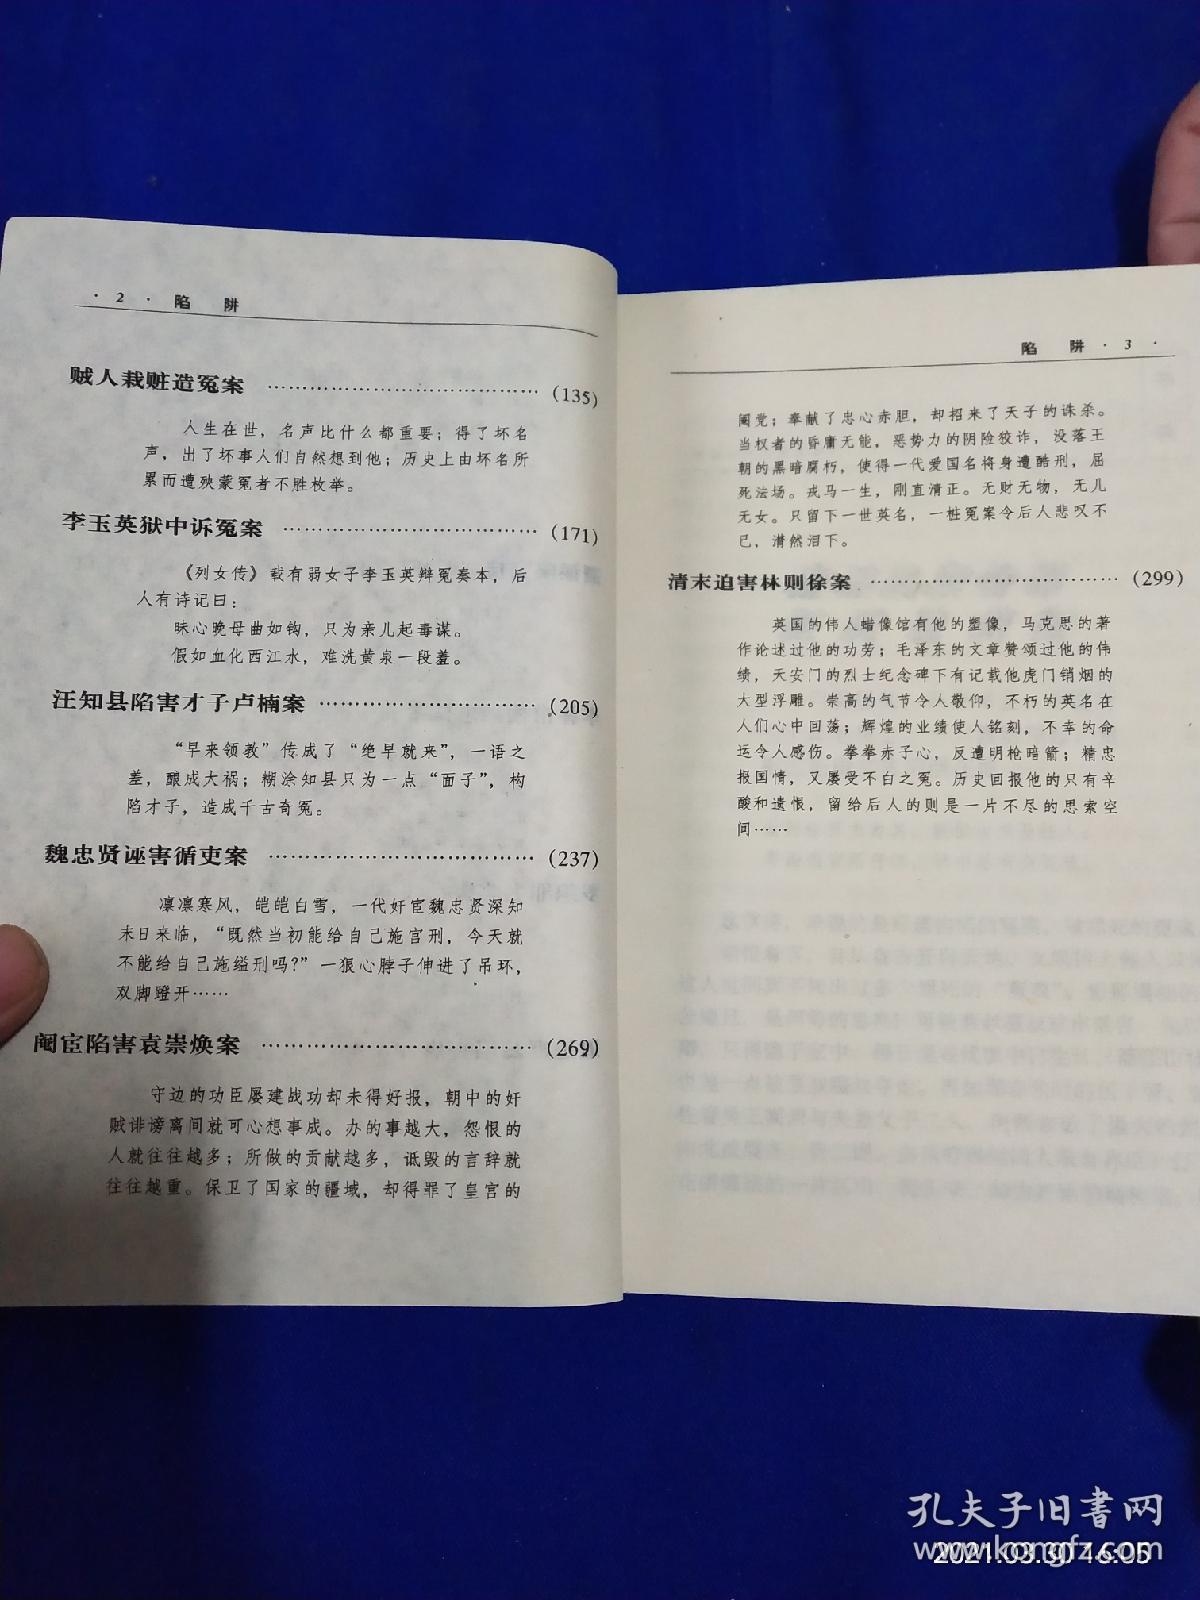 · 2 · 陷 阱
贼人栽赃造冤案 ……………………………… (135)
人生在世，名声比什么都重要；得了坏名
声，出了坏事人们自然想到他；历史上由坏名所
累而遭殃蒙冤者不胜枚举。
李玉英狱中诉冤案 …………………………… (171)
《列女传》载有弱女子李玉英辩冤奏本，后
人有诗记曰：
昧心晚母曲如钩，只为亲儿起毒谋。
假如血化西江水，难洗黄泉一段羞。
汪知县陷害才子卢楠案 ………………………… (205)
“早来领教”传成了“绝早就来”，一语之
差，酿成大祸；糊涂知县只为一点“面子”，构
陷才子，造成千古奇冤。
魏忠贤诬害循吏案 …………………………… (237)
凛凛寒风，皑皑白雪，一代奸宦魏忠贤深知
末日来临，“既然当初能给自己施宫刑，今天就
不能给自己施缢刑吗?”一狠心脖子伸进了吊环，
双脚蹬开……
阉宦陷害袁崇焕案 …………………………… (269)
守边的功臣屡建战功却未得好报，朝中的奸
贼诽谤离间就可心想事成。办的事越大，怨恨的
人就往往越多；所做的贡献越多，诋毁的言辞就
往往越重。保卫了国家的疆域，却得罪了皇宫的
陷 阱 · 3 ·
阉党；奉献了忠心赤胆，却招来了天子的诛杀。
当权者的昏庸无能，恶势力的阴险狡诈，没落王
朝的黑暗腐朽，使得一代爱国名将身遭酷刑，屈
死法场。戎马一生，刚直清正。无财无物，无儿
无女。只留下一世英名，一桩冤案令后人悲叹不
已，潸然泪下。
清末迫害林则徐案 …………………………… (299)
英国的伟人蜡像馆有他的塑像，马克思的著
作论述过他的功劳；毛泽东的文章赞颂过他的伟
绩，天安门的烈士纪念碑下有记载他虎门销烟的
大型浮雕。崇高的气节令人敬仰，不朽的英名在
人们心中回荡；辉煌的业绩使人铭刻，不幸的命
运令人感伤。拳拳赤子心，反遭明枪暗箭；精忠
报国情，又屡受不白之冤。历史回报他的只有辛
酸和遗恨，留给后人的则是一片不尽的思索空
间……
孔夫子旧书网
www.kongfz.com
2021.03.30 16:05